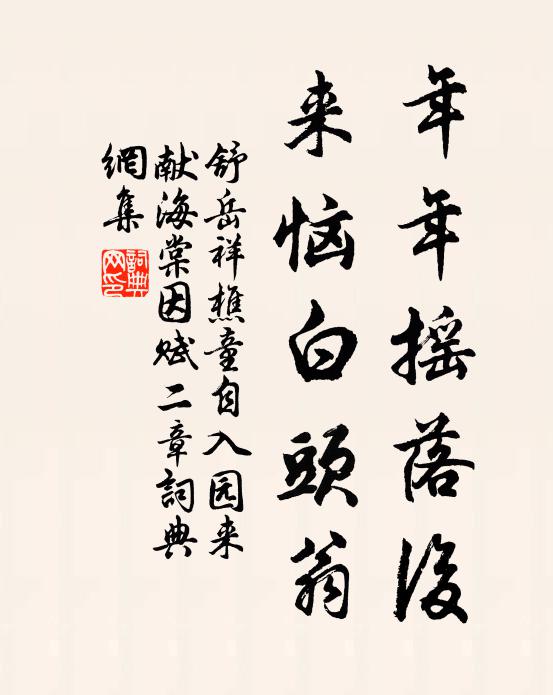 年年摇落後
来恼白頭翁
舒岳祥樵童自入园来
献海棠因赋二章詞典
網集
詞典網印